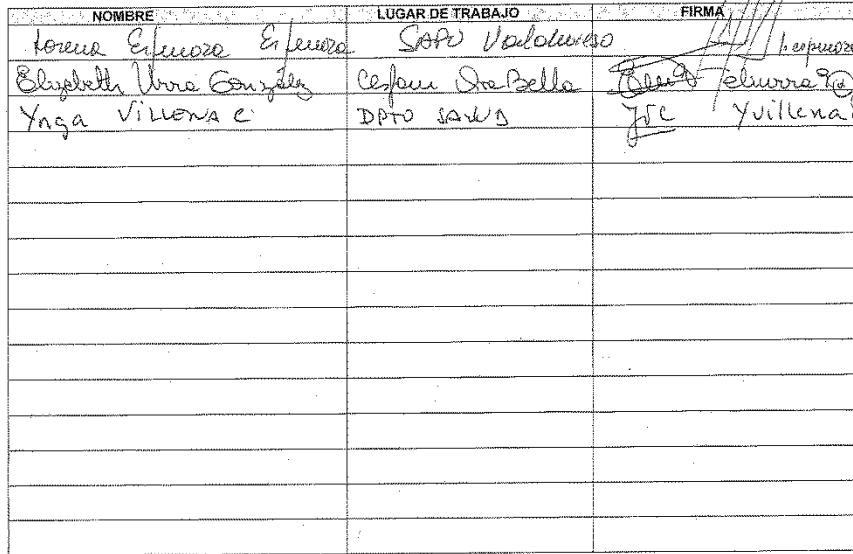 NOMBRE LUGAR DE TRABAJO FIRMA
Lorena Espinoza Espinoza SAPU Valdivieso l.espinoza
Elizabeth Urra González Cesfam Ora Bella elurra
Ynga VILLENA C. DPTO SALUD YVC yvillena